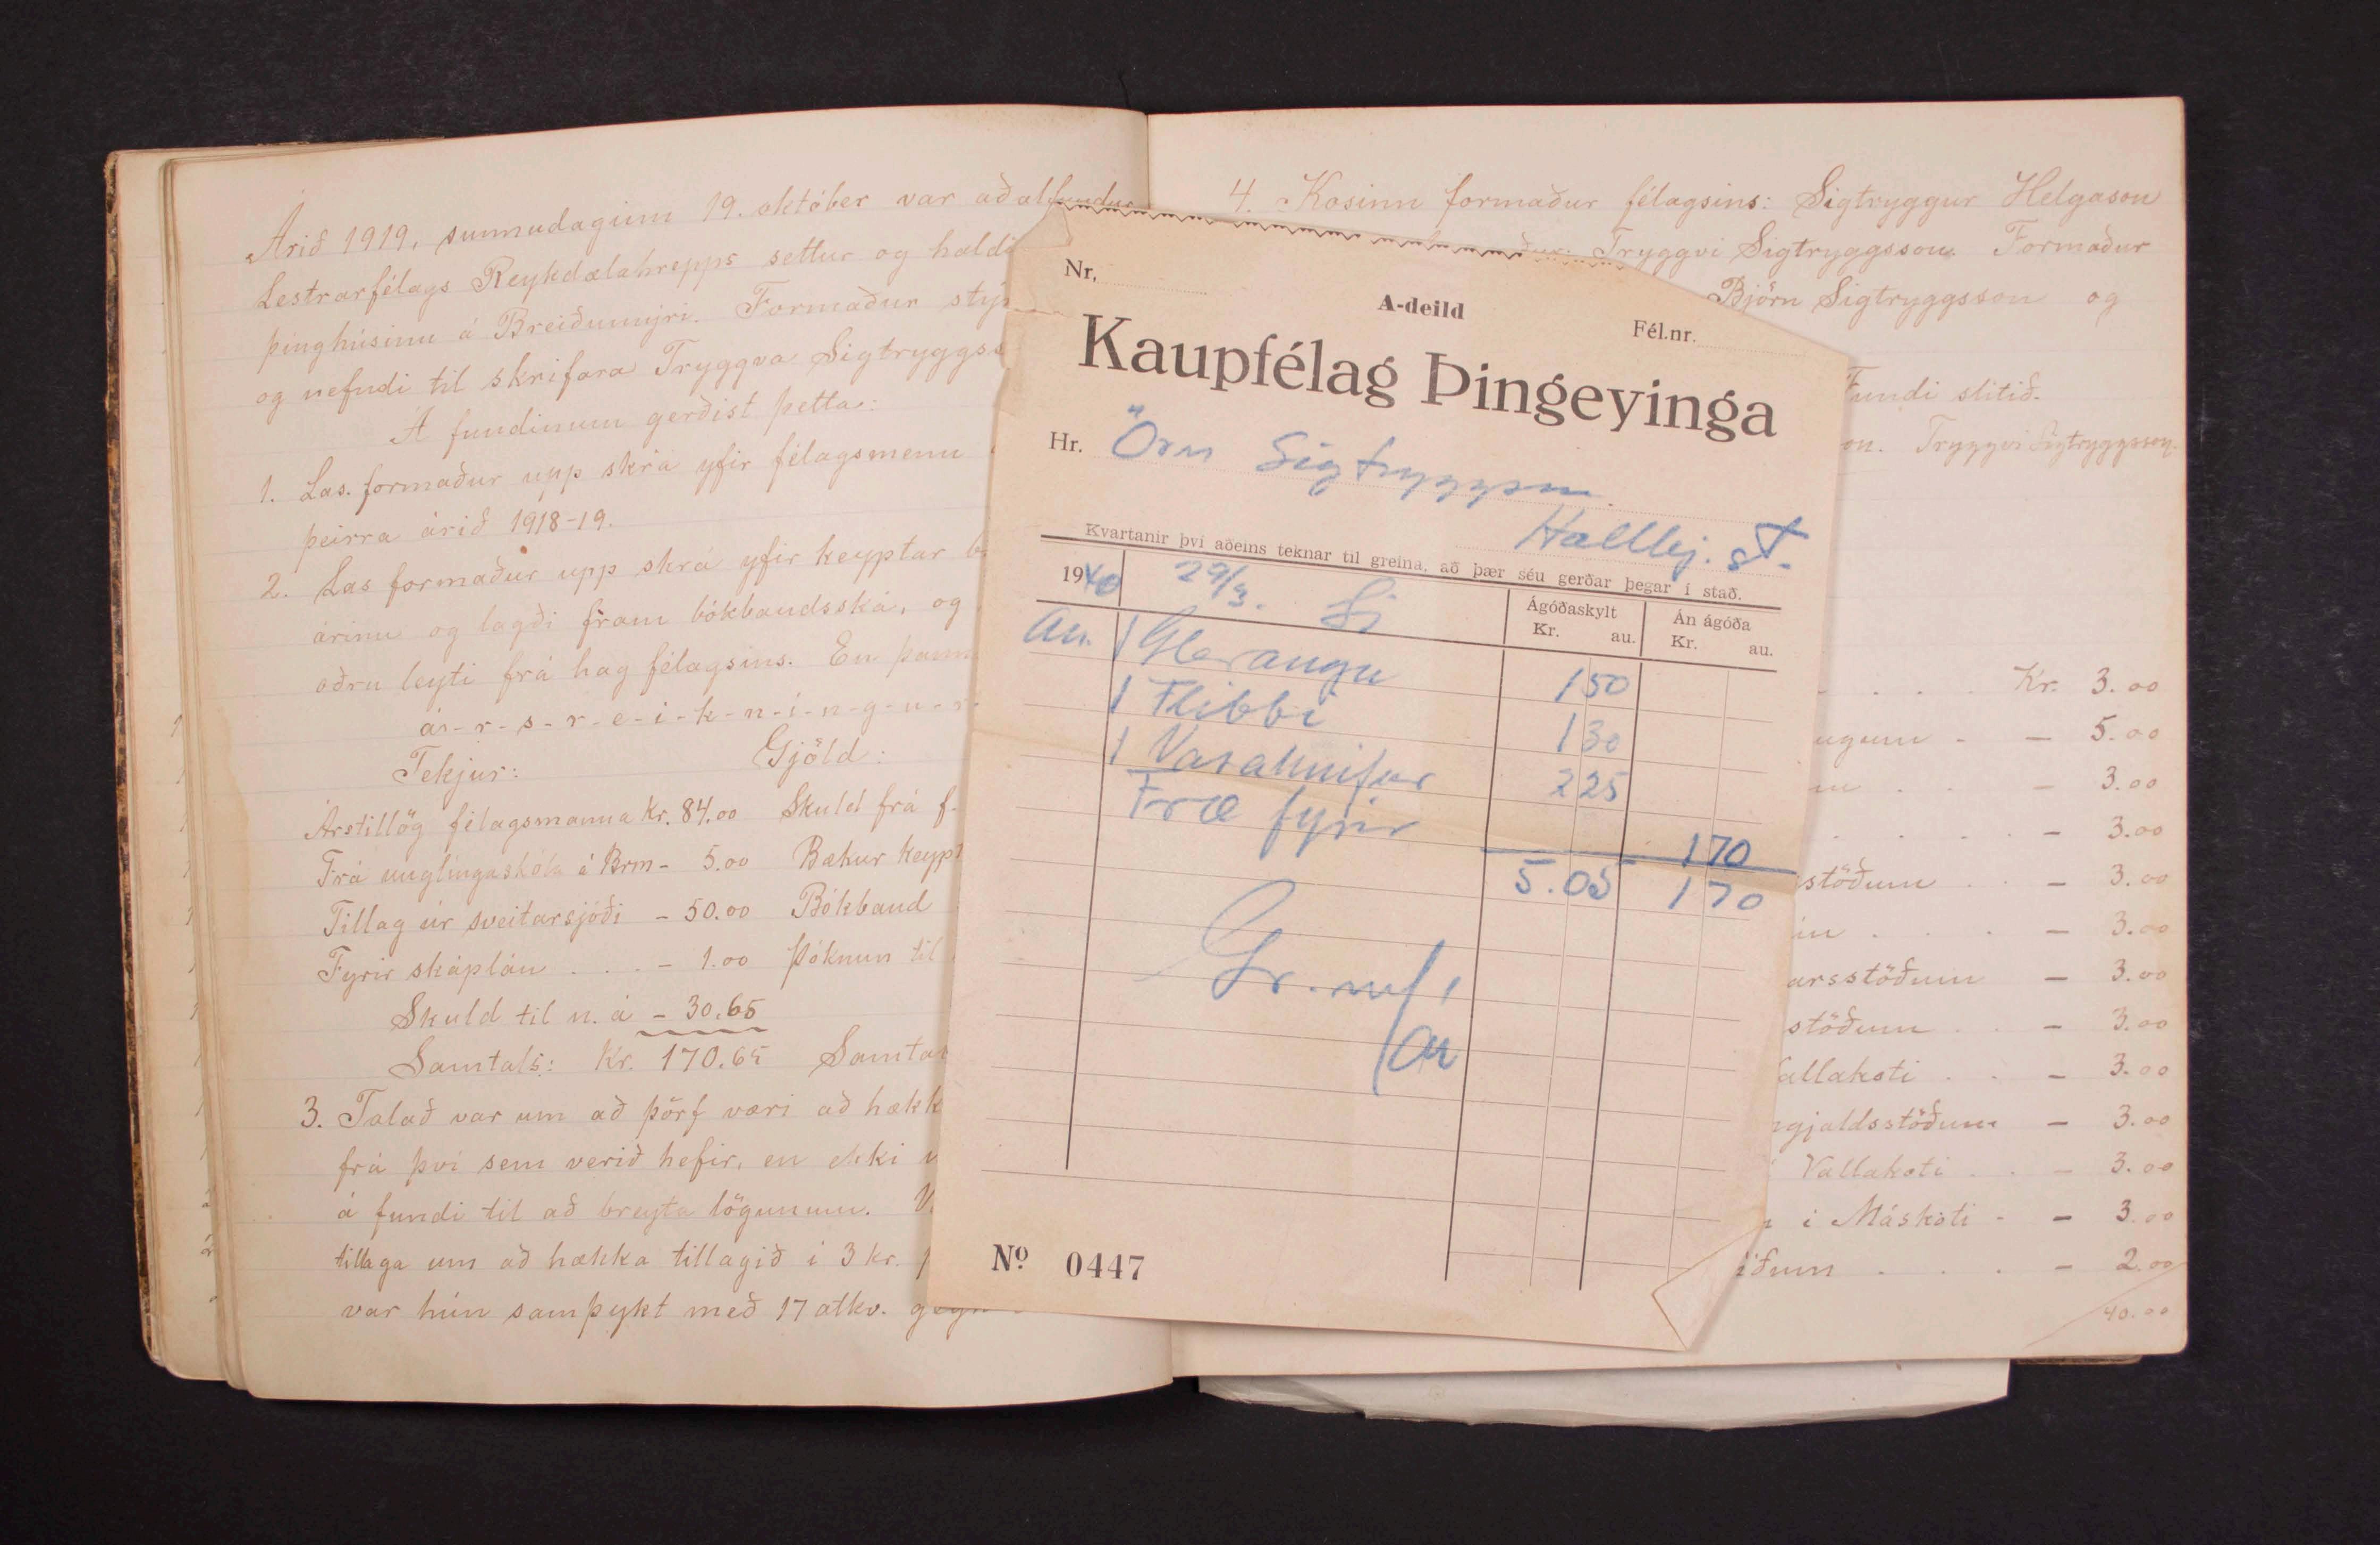 Árið 1919, sunnudaginn 19. október var aðalfundur
Lestrarfélags Reykdælahrepps settur og
þinghúsinu á Breiðumýri. Formaður
og nefndi til skrifara Tryggva
Á fundinum gerðist þetta:
1. Las formaður upp skrá yfir félagsmenn
þeirra árið 1918-19.
2. Las formaður upp skrá yfir keyptar
árinu og lagði fram bókbandsská, og
öðru leyti frá hag félagsins. En
ár-r-s-r-e-i-k-n-i-n-g-u-r-
Tekjur: Gjöld:
Árstillög félagsmanna Kr. 84.00 Skuld frá f.
Frá unglingaskóla á Brm - 5.00 Bækur
Tillag úr sveitarsjóði - 50.00 Bókband
Fyrir skáplán . . . - 1.00 Þóknun til
Skuld til n. á - 30.65
Samtals: Kr. 170.65
3. Talað var um að þörf væri að
frá því sem verið hefir, en ekki
á fundi til að breyta lögunum.
tillaga um að hækka tillagið í 3 kr.
var hún samþykt með 17 atkv.
4. Kosinn formaður félagsins: Sigtryggur Helgason
Tryggvi Sigtryggsson. Formaður
Björn Sigtryggsson og
Fundi slitið.
on. Tryggvi Sigtryggsson.
Kr. 3.00
ugum - - 5.00
m . . - 3.00
. . . - 3.00
stöðum . . - 3.00
. . . - 3.00
arsstöðum - 3.00
stöðum . . - 3.00
allakoti . . - 3.00
gjaldsstöðum - 3.00
Vallakoti . . - 3.00
í Máskoti - - 3.00
. . . - 2.00
40.00
Nr.
A-deild
Fél.nr.
Kaupfélag Þingeyinga
Hr. Örn Sigtryggsson
Hallbj. st.
Kvartanir því aðeins teknar til greina, að þær séu gerðar þegar í stað.
1940 29/3.
Ágóðaskylt
Kr. au.
Án ágóða
Kr. au.
1 Gleraugu 150
1 Flibbi 130
1 Vasahnífur 225
Fræ fyrir 170
5.05 170
Nº 0447